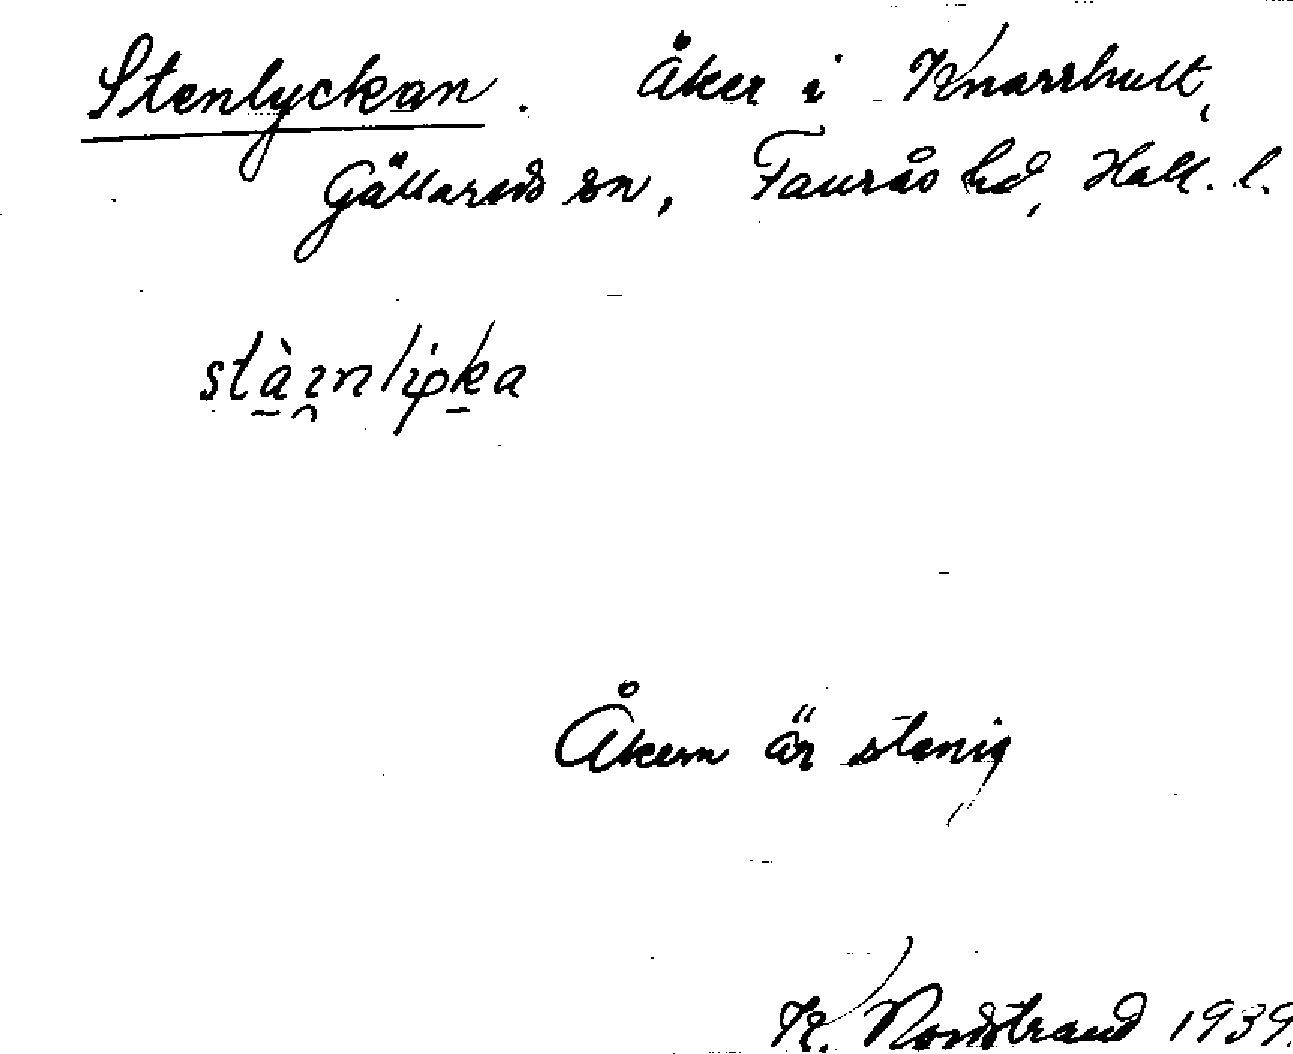 Stenlyckan. Åker i Knarrhult,
Gällareds sn, Faurås hd, Hall. l.
Åkern är stenig
K. Nordstrand 1939.